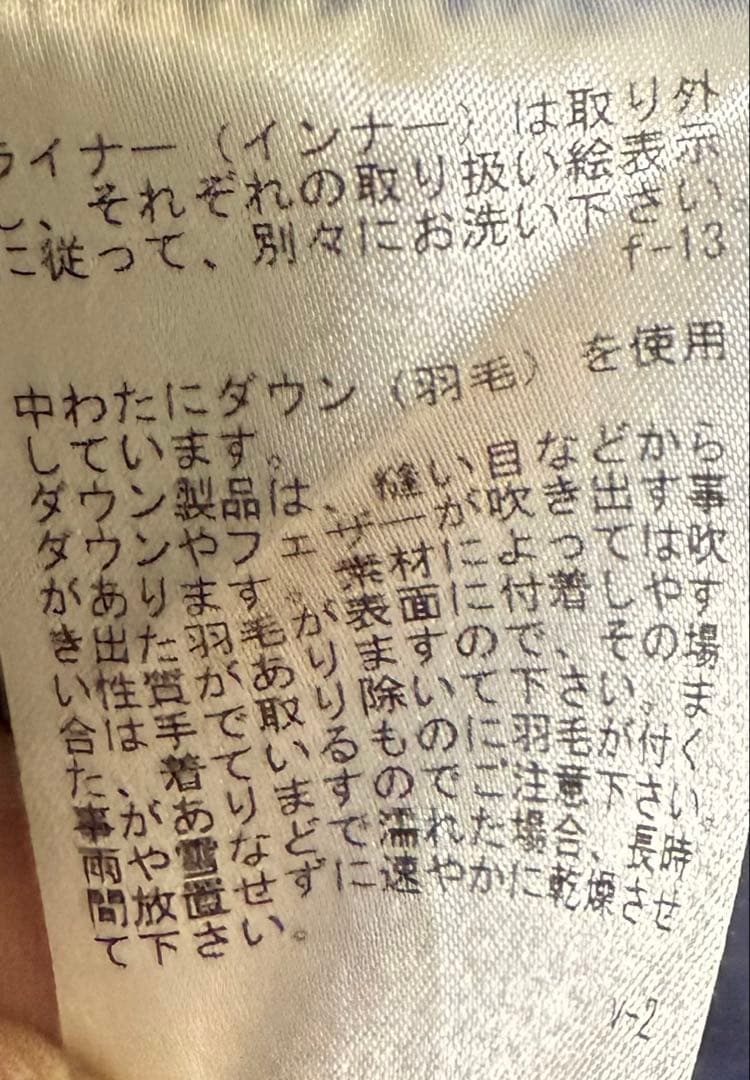 ライナー（インナー）は取り外
し、それぞれの取り扱い絵表示
に従って、別々にお洗い下さい。
f-13
中わたにダウン（羽毛）を使用
しています。
ダウン製品は、縫い目などから
ダウンやフェザーが吹き出す事
があります。素材によっては吹
き出た羽毛が表面に付着しやす
い性質がありますので、その場
合は手で取り除いて下さい。ま
た、着ているものに羽毛が付く
事がありますのでご注意下さい。
雨や雪などで濡れた場合、長時
間放置せずに速やかに乾燥させ
て下さい。
V-2